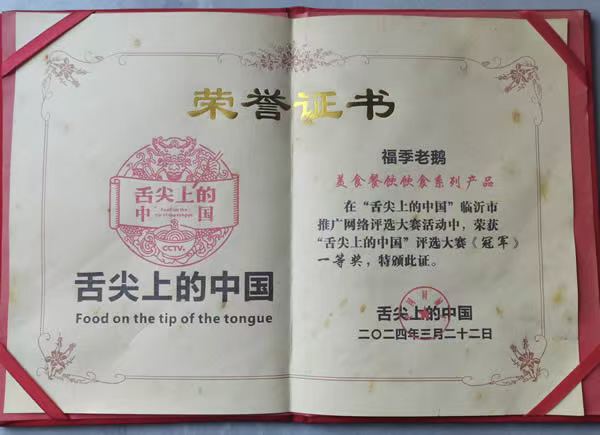 荣誉证书
舌尖上的
中 国
Food on the
tip of the tongue
CCTV
舌尖上的中国
Food on the tip of the tongue
福季老鹅
美食餐饮饮食系列产品
在“舌尖上的中国”临沂市
推广网络评选大赛活动中，荣获
“舌尖上的中国”评选大赛《冠军》
一等奖，特颁此证。
舌尖上的中国
二〇二四年三月二十二日